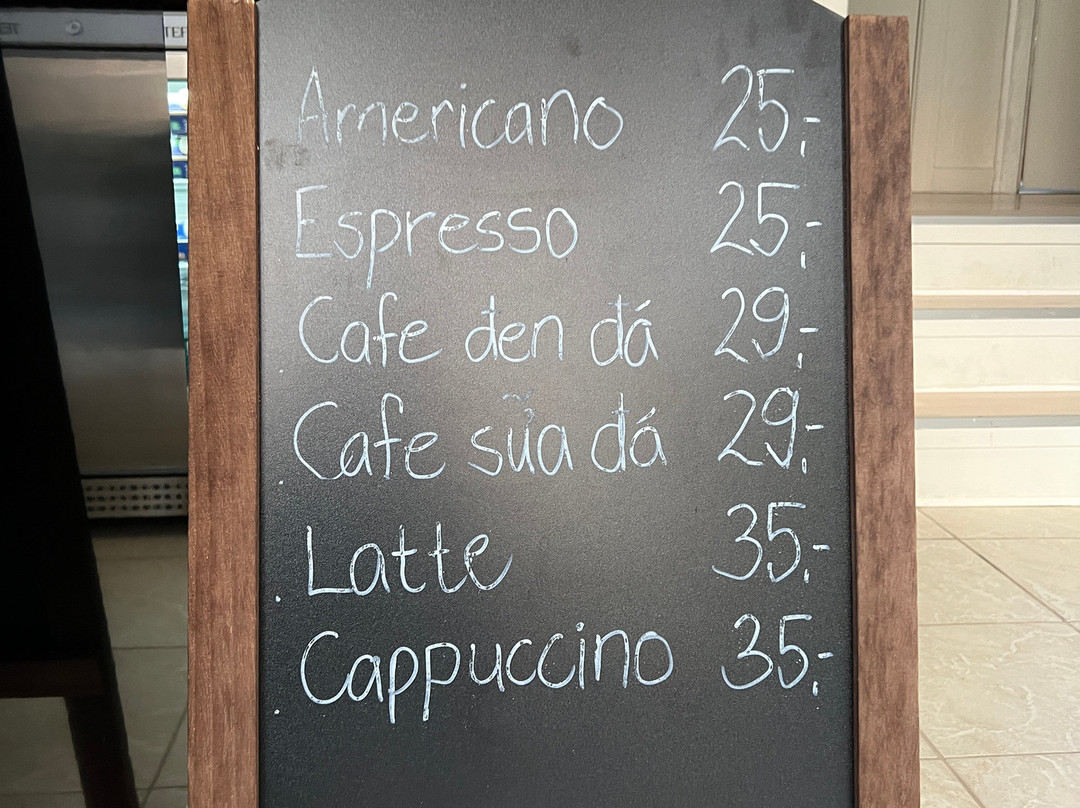 Americano 25;-
Espresso 25;-
Cafe đen đá 29;-
Cafe sữa đá 29;-
Latte 35;-
Cappuccino 35;-